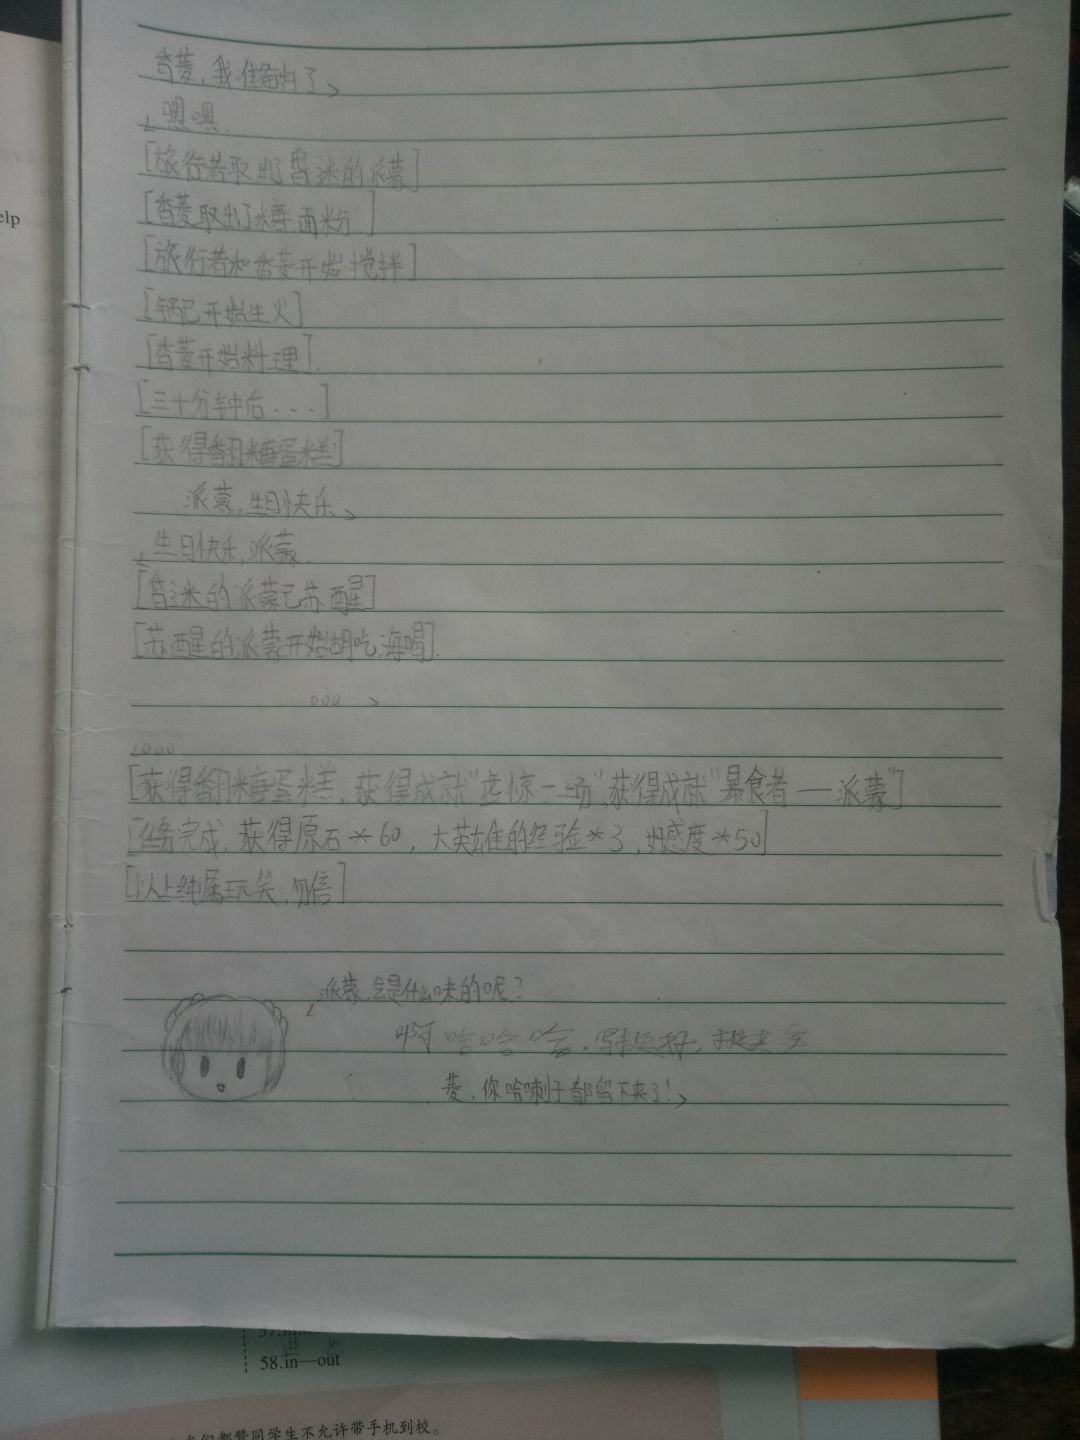 elp
香菱,我准备好了
嘿嘿.
[旅行者取出了昏迷的派蒙]
[香菱取出了糖,面粉.]
[旅行者和香菱开始搅拌]
[锅巴开始生火]
[香菱开始料理].
[三十分钟后...]
[获得翻糖蛋糕]
派蒙,生日快乐
生日快乐,派蒙.
[昏迷的派蒙已苏醒]
[苏醒的派蒙开始胡吃海喝].
。。。
。。。
[获得翻糖蛋糕,获得成就"虚惊一场",获得成就"暴食者——派蒙"]
[任务完成,获得原石*60,大英雄的经验*3,好感度*50]
[以上纯属玩笑,勿信]
派蒙,会是什么味的呢?
啊哈哈哈.
菱,你哈喇子都留下来了!
58.in—out
们都赞同学生不允许带手机到校。